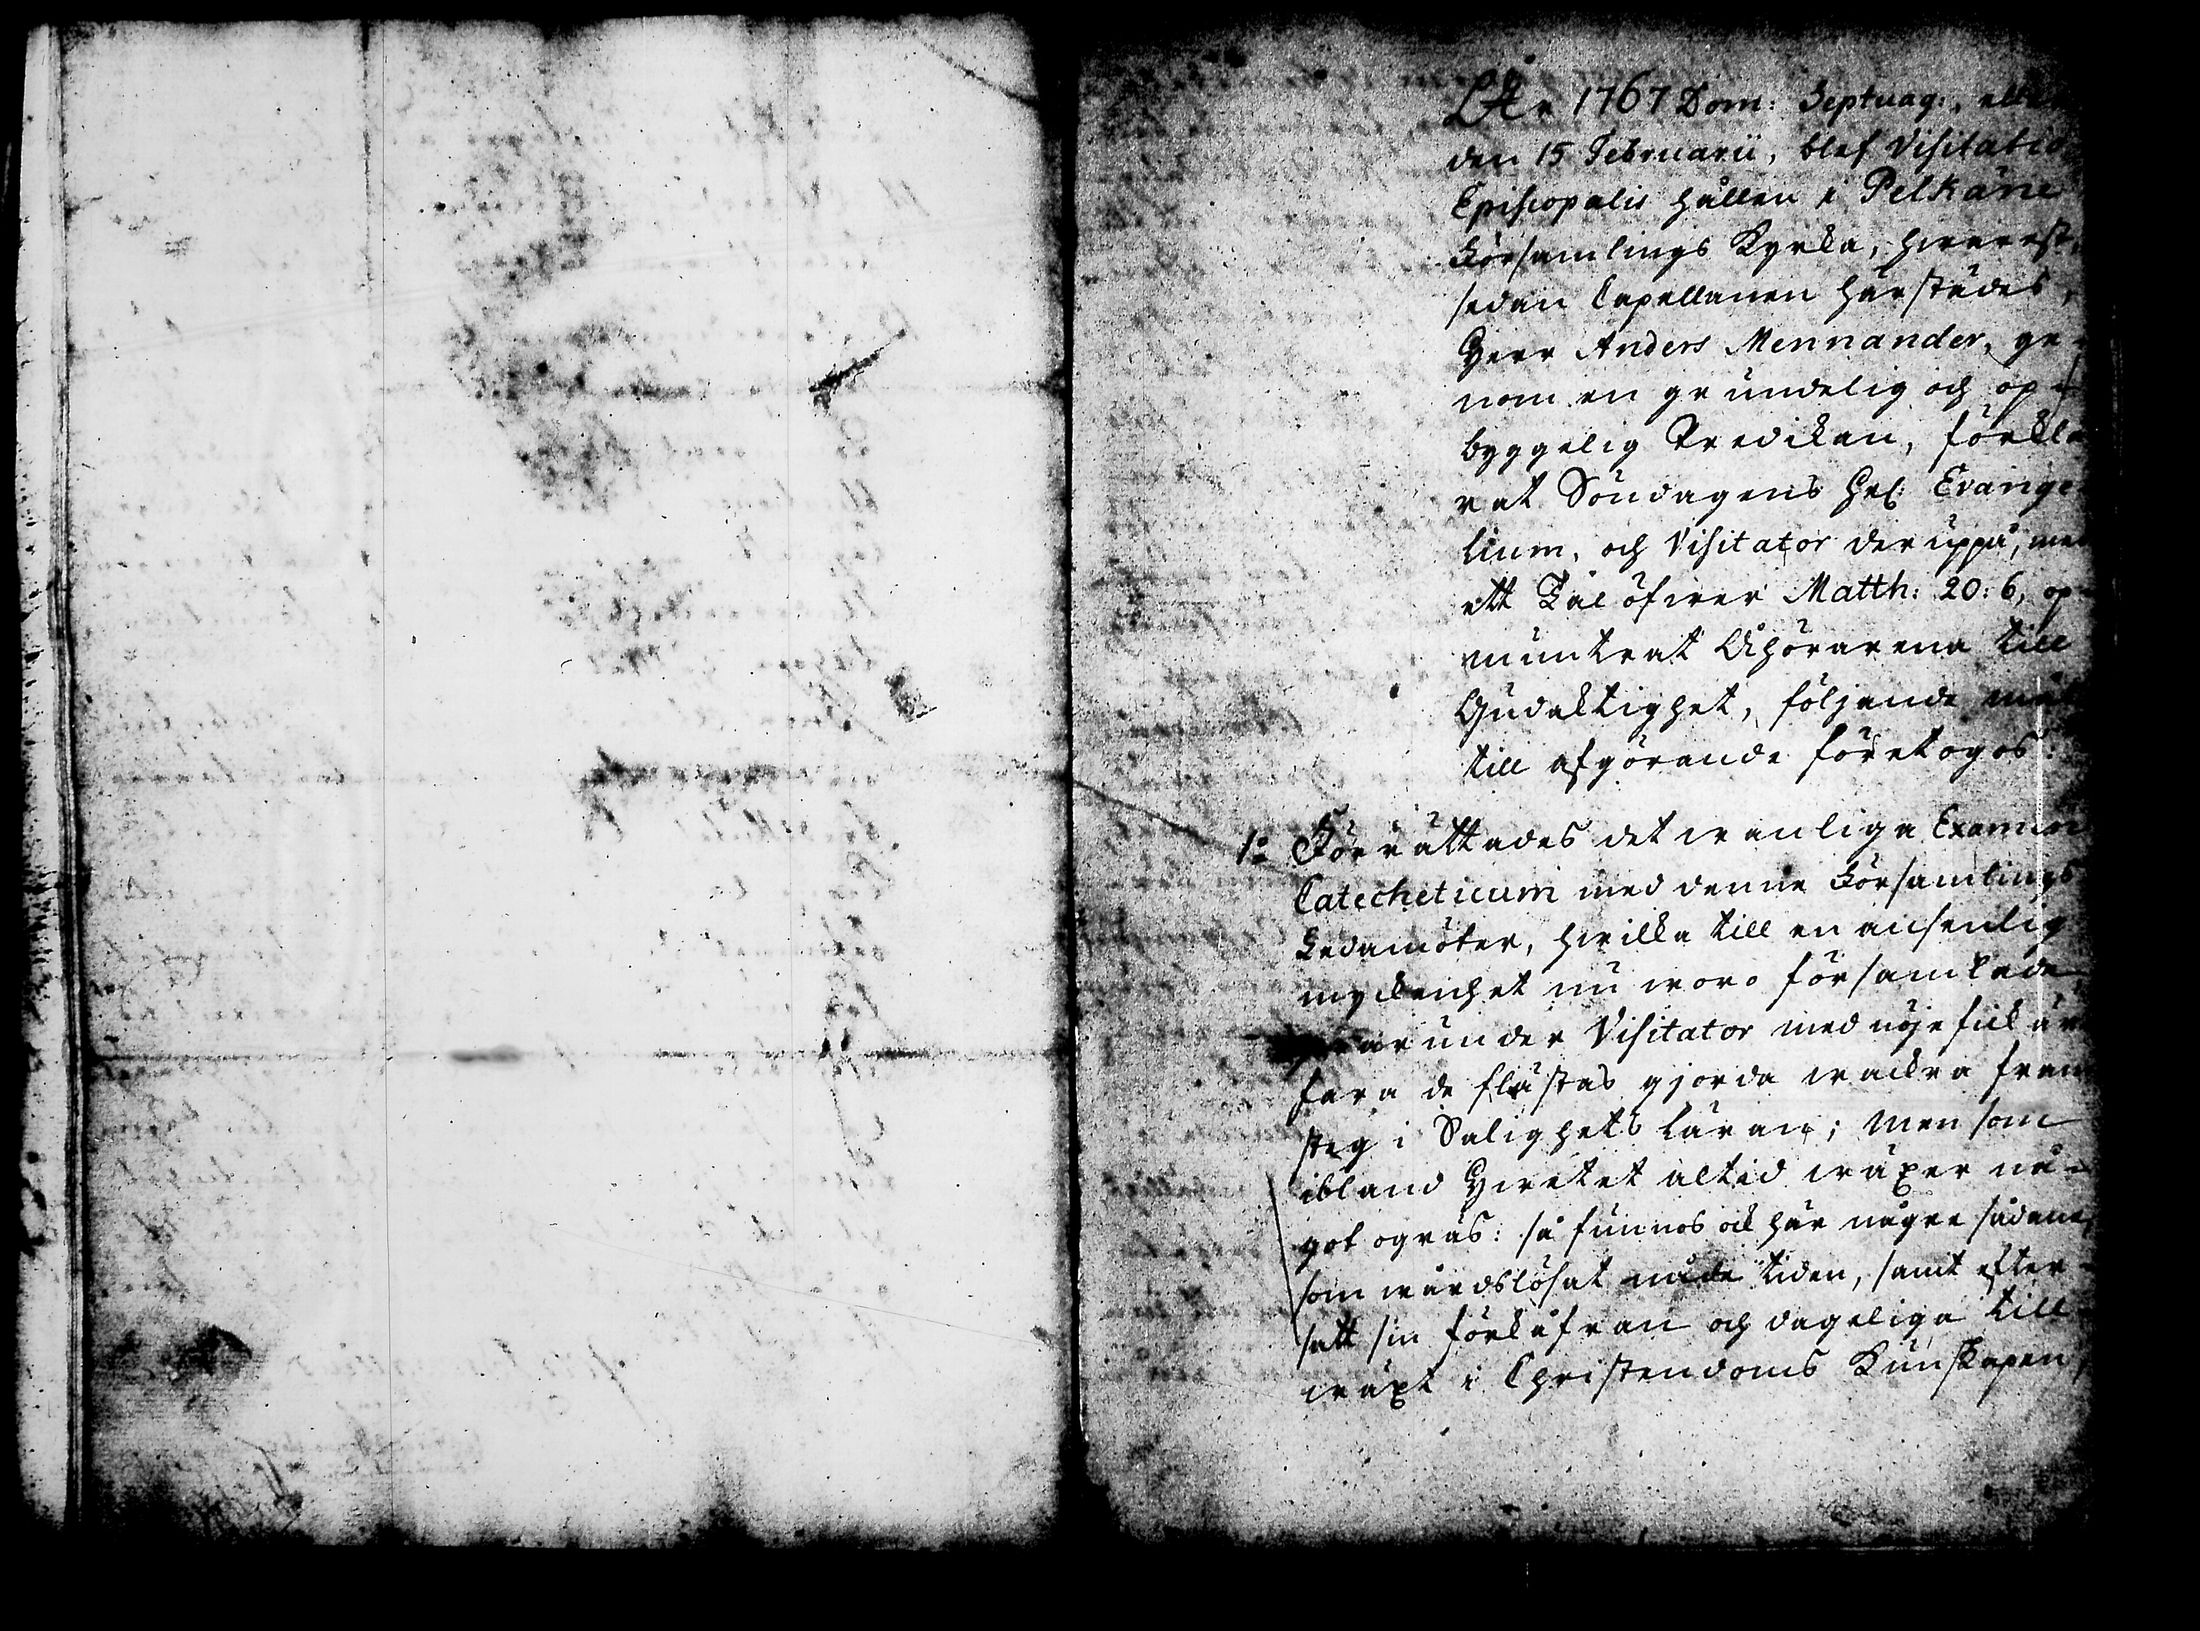 År 1767 Dom: Septuag:, eller
den 15 Februarii, blef Visitatio
Episcopalis hållen i Pelkäne
Församlings Kyrka, hwarest,
sedan Capellanen härstädes,
Herr Anders Mennander, ge-
nom en grundelig och op-
byggelig Predikan, förkla
rat Söndagens Hel: Evange-
lium, och Visitator deruppå, med
ett Tal öfwer Matth: 20: 6, op-
muntrat Åhörarena till
Gudaktighet, följande mål
till afgörande företogos:
1:o Förrättades det wanliga Examen
Catecheticum med denne Församlings
Ledamöter, hwilka till en ansenlig
myckenhet nu woro församlade,
hwarunder Visitator med nöje fick är
fara de flästas gjorda wackra fram
steg i Salighets läran; Men som
ibland Hwetet altid wäxer nå-
got ogräs: så funnos ock här någre sådane,
som wårdslösat nåde tiden, samt efter-
satt sin förkåfran och dageliga till-
wäxt i Christendoms Kunskapen,